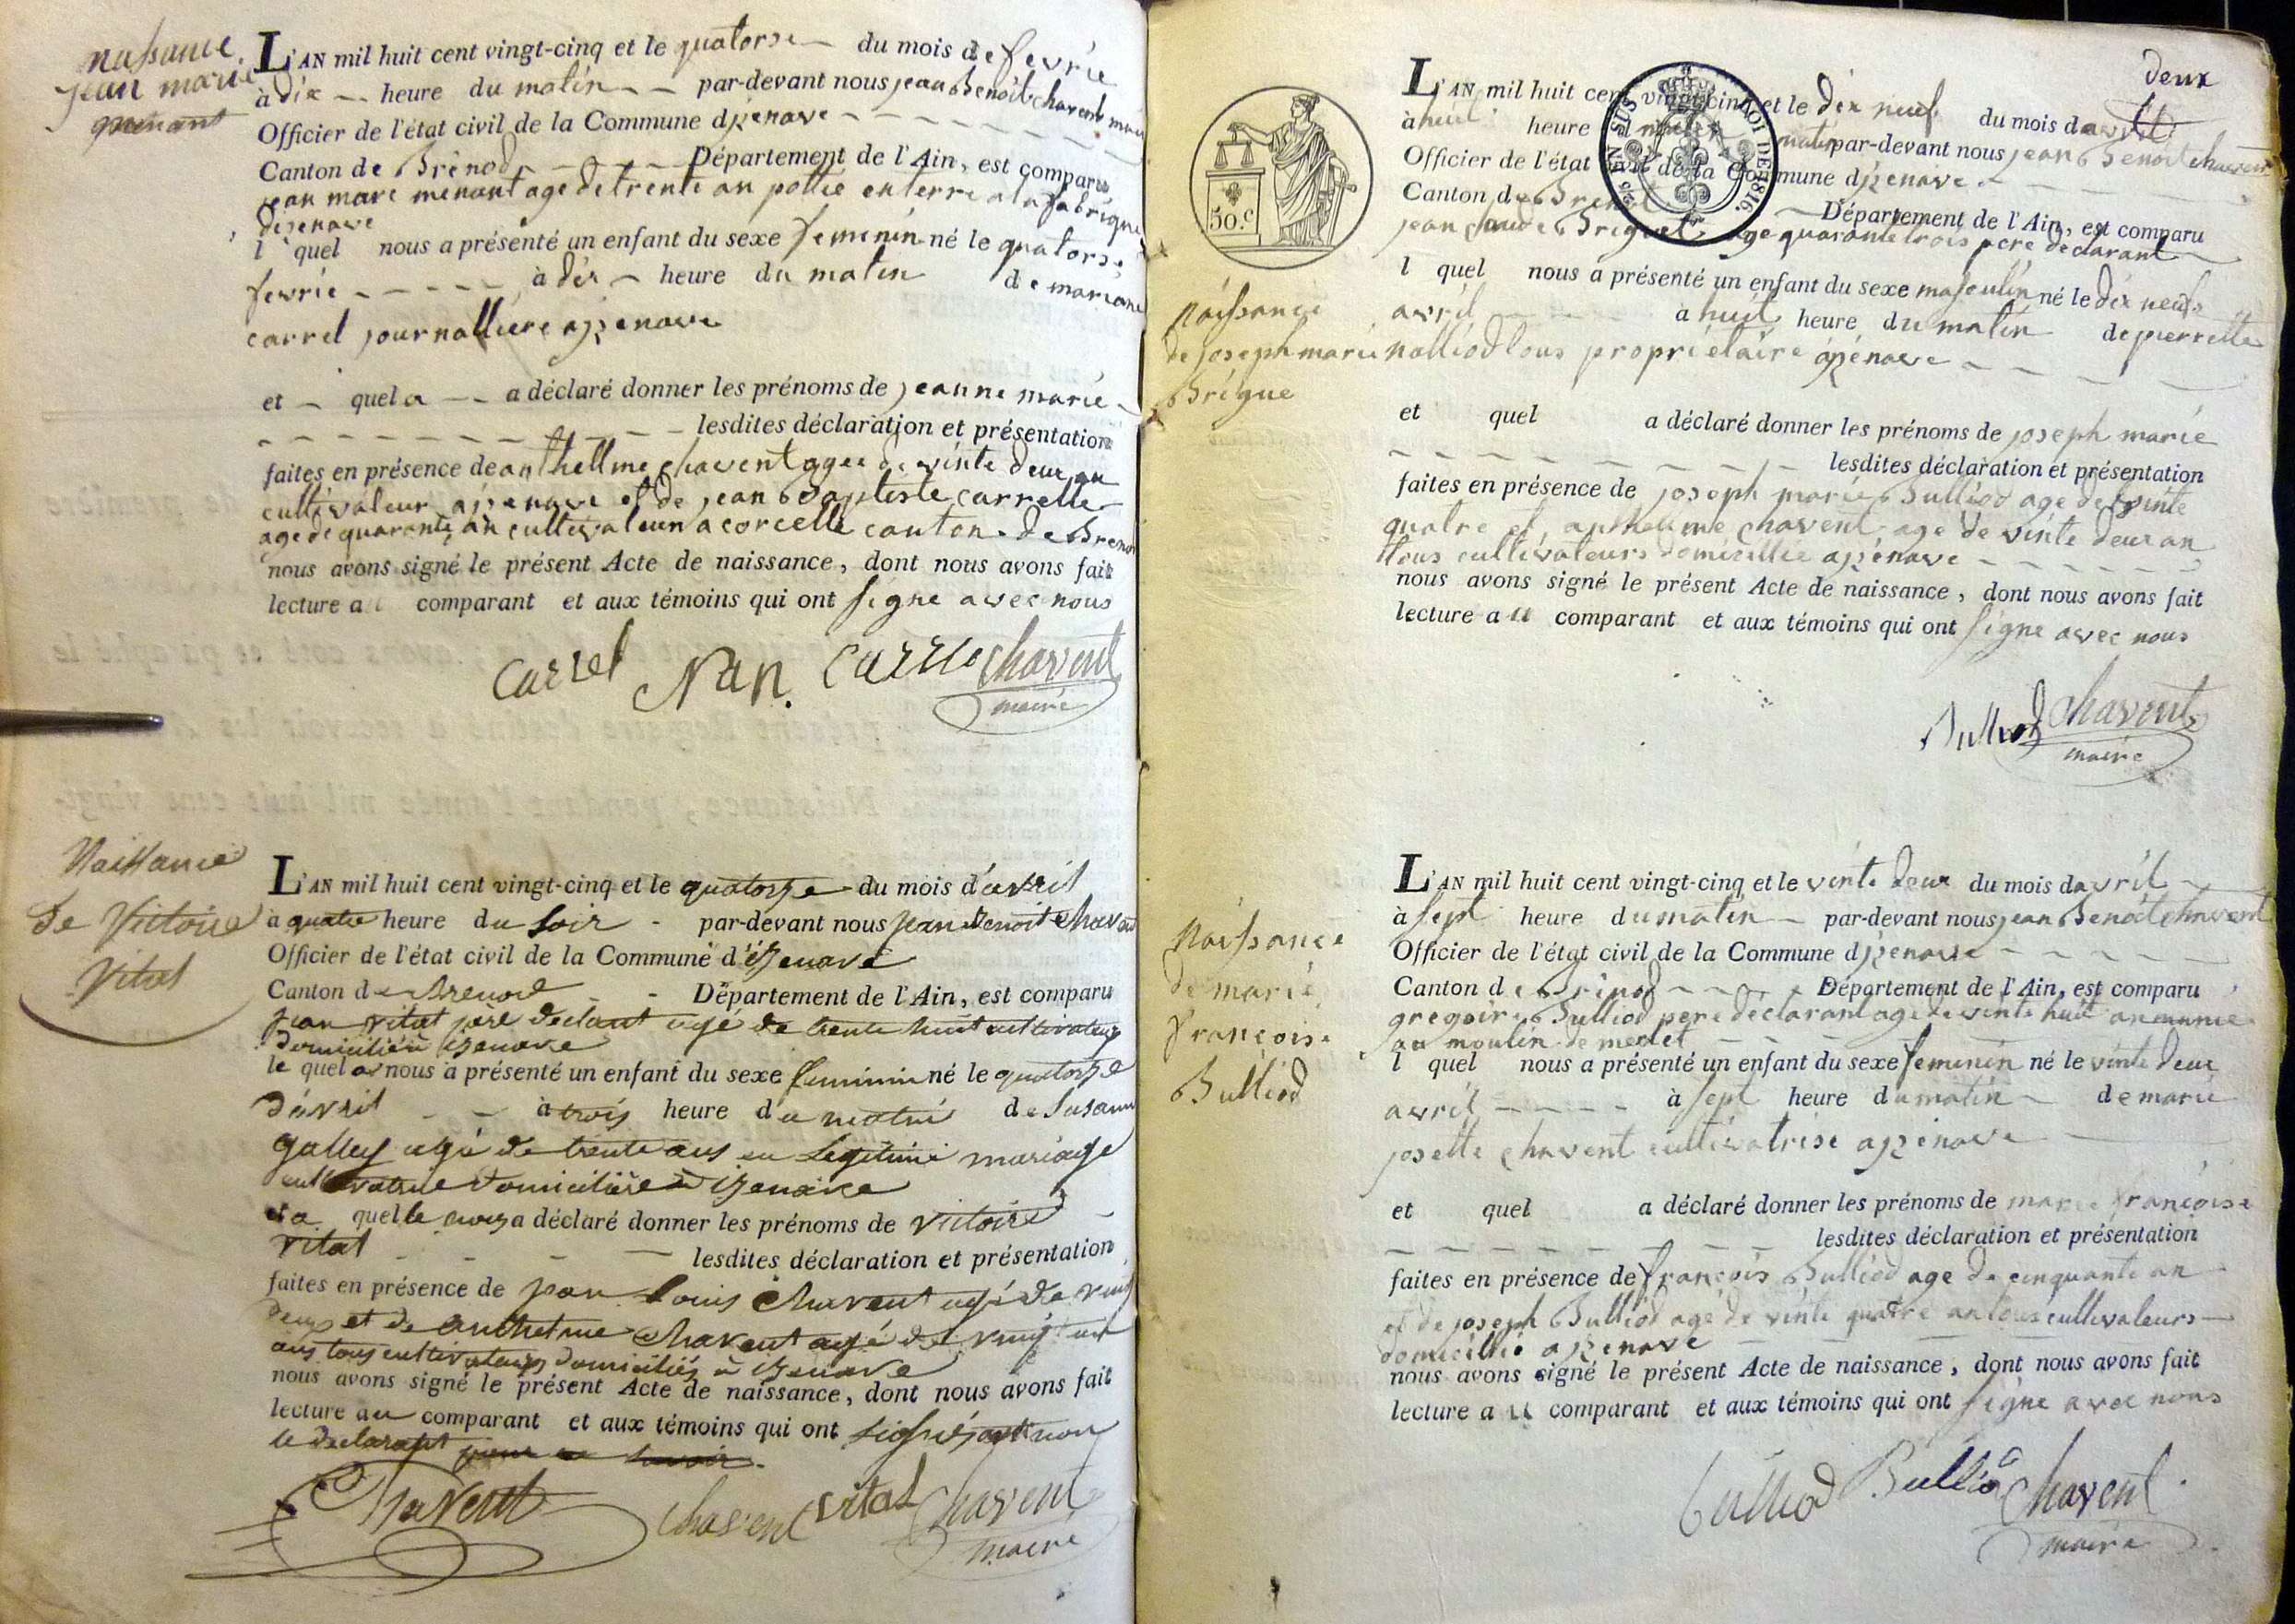 naissance
jean marie
L'AN mil huit cent vingt-cinq et le quatorse du mois de fevrie
à dix heure du matin par-devant nous jean Benoit chavent maire
Officier de l'état civil de la Commune djzenave
Canton de Brénod Département de l'Ain, est comparu
jean marc menant age de trente an pottie en terre a la fabrique
djzenave
l quel nous a présenté un enfant du sexe femenin né le quatorse
fevrie à dix heure du matin de mariane
carrel journalliere ajzenave
et quel a a déclaré donner les prénoms de jeanne marie
lesdites déclaration et présentation
faites en présence de anthellme chavent agee de vinte deux an
cultivateur ajzenave et de jean Baptiste carrelle
age de quarante an cultivateur a corcelle canton de Brenod
nous avons signé le présent Acte de naissance, dont nous avons fait
lecture a comparant et aux témoins qui ont signe avec nous
carrel Nan. chavent
maire
Naissance
de Victoire
Vital
L'AN mil huit cent vingt-cinq et le quatorze du mois d'avril
à quatre heure du soir par-devant nous jean Benoit Chavent
Officier de l'état civil de la Commune d'izenave
Canton de Brenod Département de l'Ain, est comparu
jean vital pere declant agé de trente huit cultivateur
domicilié à izenave
le quel nous a présenté un enfant du sexe feminin né le quatorze
d'avril à trois heure du matin de Susanne
Galley agé de trente ans en legitime mariage
cultivatrice domiciliere à izenave
et a quelle a déclaré donner les prénoms de victoire
vital lesdites déclaration et présentation
faites en présence de jean Louis Chavent agé de vingt
deux et de anthelme Chavent agé de vingt un
ans tous cultivateurs domiciliés à izenave
nous avons signé le présent Acte de naissance, dont nous avons fait
lecture au comparant et aux témoins qui ont signés
le declarant
Chavent chavent vital Chavent
maire
deux
50.c
EN SUS LOI DE 1816.
L'AN mil huit cent vingt-cinq et le dix neuf du mois d avril
à huit heure du matin par-devant nous jean Benoit chavent
Officier de l'état civil de la Commune djzenave
Canton de Brenod Département de l'Ain, est comparu
jean claude Briguet age quarante trois pere declarant
l quel nous a présenté un enfant du sexe masculin né le dix neuf
Naissance
de joseph marie
Brigue
avril a huit heure du matin de pierrette
nalliod tous proprietaire ajzenave
et quel a déclaré donner les prénoms de joseph marie
lesdites déclaration et présentation
faites en présence de joseph marie Bulliod age de vinte
quatre et anthellme chavent age de vinte deux an
tous cultivateurs domicillie ajzenave
nous avons signé le présent Acte de naissance, dont nous avons fait
lecture a comparant et aux témoins qui ont signe avec nous
Bulliod chavent
maire
Naissance
de marie
françoise
Bulliod
L'AN mil huit cent vingt-cinq et le vinte deux du mois d avril
à sept heure du matin par-devant nous jean Benoit chavent
Officier de l'état civil de la Commune djzenave
Canton de Brénod Département de l'Ain, est comparu
gregoire Bulliod pere declarant age de vinte huit an
au moulin de
l quel nous a présenté un enfant du sexe femenin né le vinte deux
avril à sept heure du matin de marie
josette chavent cultivatrise ajzenave
et quel a déclaré donner les prénoms de marie françoise
lesdites déclaration et présentation
faites en présence de françois Bulliod age de cinquante an
et de joseph Bulliod age de vinte quatre an tous cultivateurs
domicillié ajzenave
nous avons signé le présent Acte de naissance, dont nous avons fait
lecture a comparant et aux témoins qui ont signe avec nous
bulliod Bullio chavent
maire